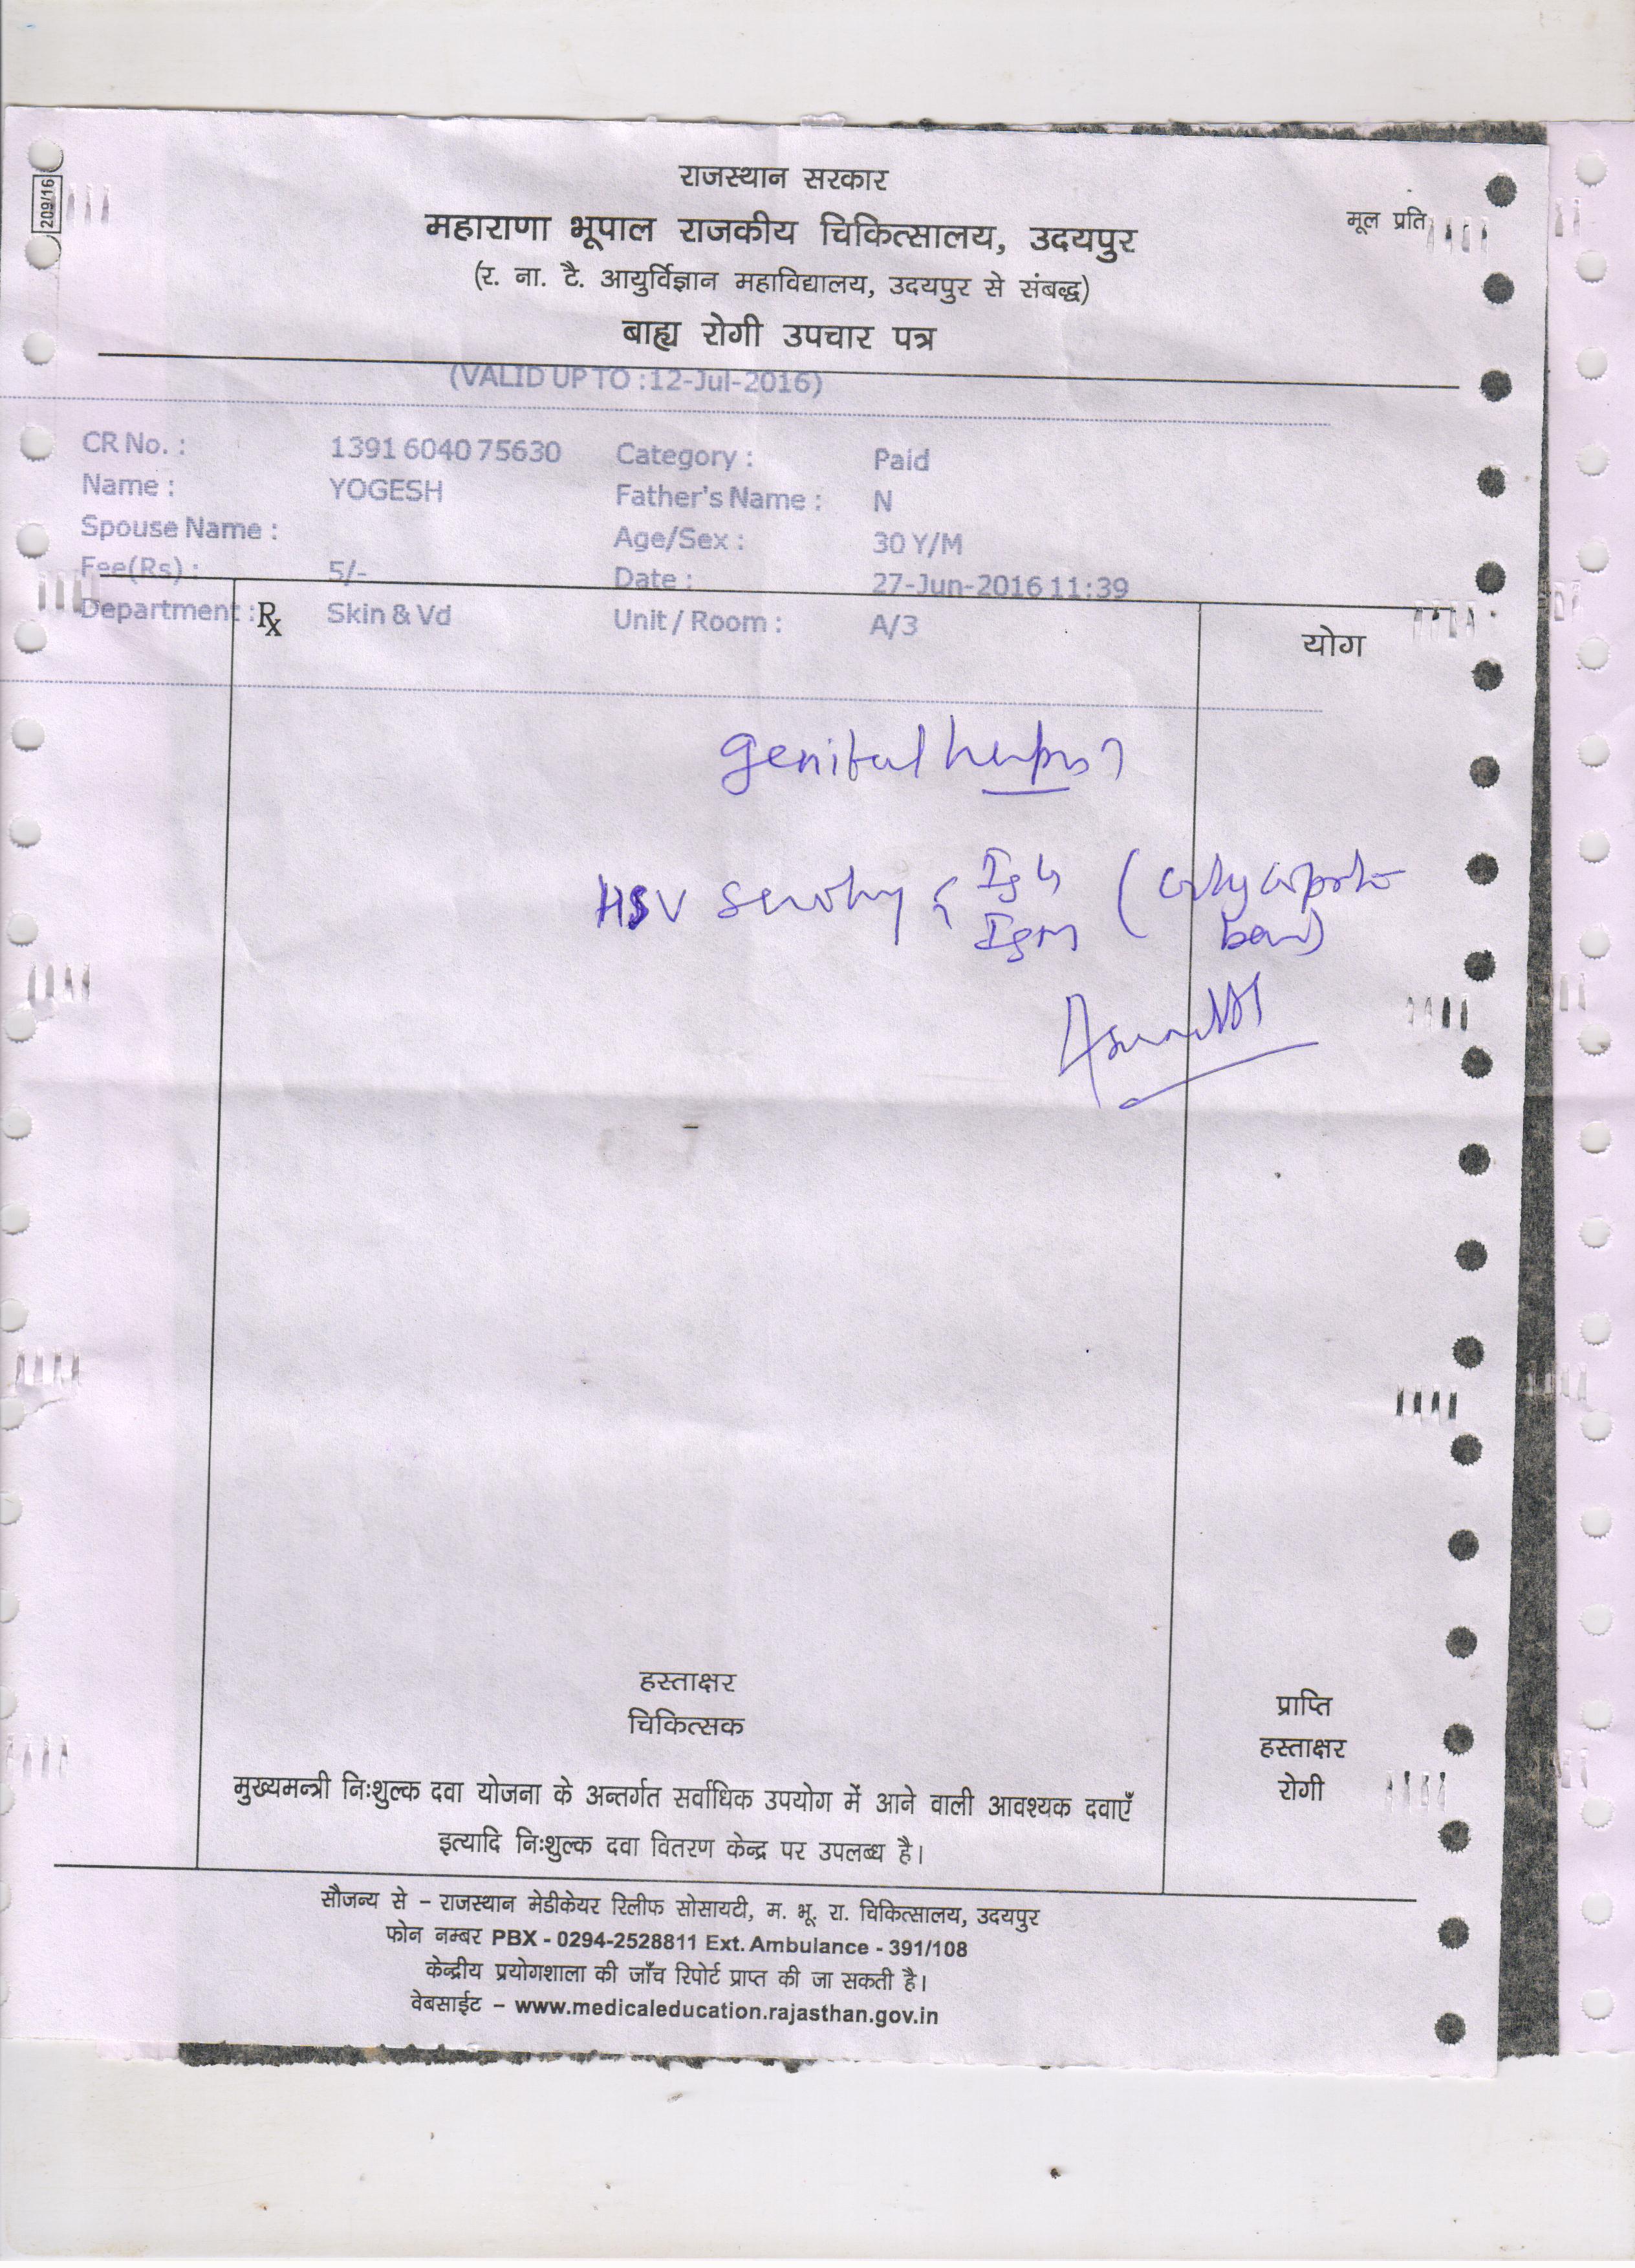 209/16
राजस्थान सरकार
मूल प्रति
महाराणा भूपाल राजकीय चिकित्सालय, उदयपुर
(र. ना. टै. आयुर्विज्ञान महाविद्यालय, उदयपुर से संबद्ध)
बाह्य रोगी उपचार पत्र
(VALID UP TO :12-Jul-2016)
CR No. : 1391 6040 75630 Category : Paid
Name : YOGESH Father's Name : N
Spouse Name : Age/Sex : 30 Y/M
Fee(Rs) : 5/- Date : 27-Jun-2016 11:39
Department : Skin & Vd Unit / Room : A/3
Rx योग
genital herpes?
HSV IgG
IgM
हस्ताक्षर
चिकित्सक
प्राप्ति
हस्ताक्षर
रोगी
मुख्यमन्त्री निःशुल्क दवा योजना के अन्तर्गत सर्वाधिक उपयोग में आने वाली आवश्यक दवाएँ
इत्यादि निःशुल्क दवा वितरण केन्द्र पर उपलब्ध है।
सौजन्य से – राजस्थान मेडीकेयर रिलीफ सोसायटी, म. भू. रा. चिकित्सालय, उदयपुर
फोन नम्बर PBX - 0294-2528811 Ext. Ambulance - 391/108
केन्द्रीय प्रयोगशाला की जाँच रिपोर्ट प्राप्त की जा सकती है।
वेबसाईट – www.medicaleducation.rajasthan.gov.in